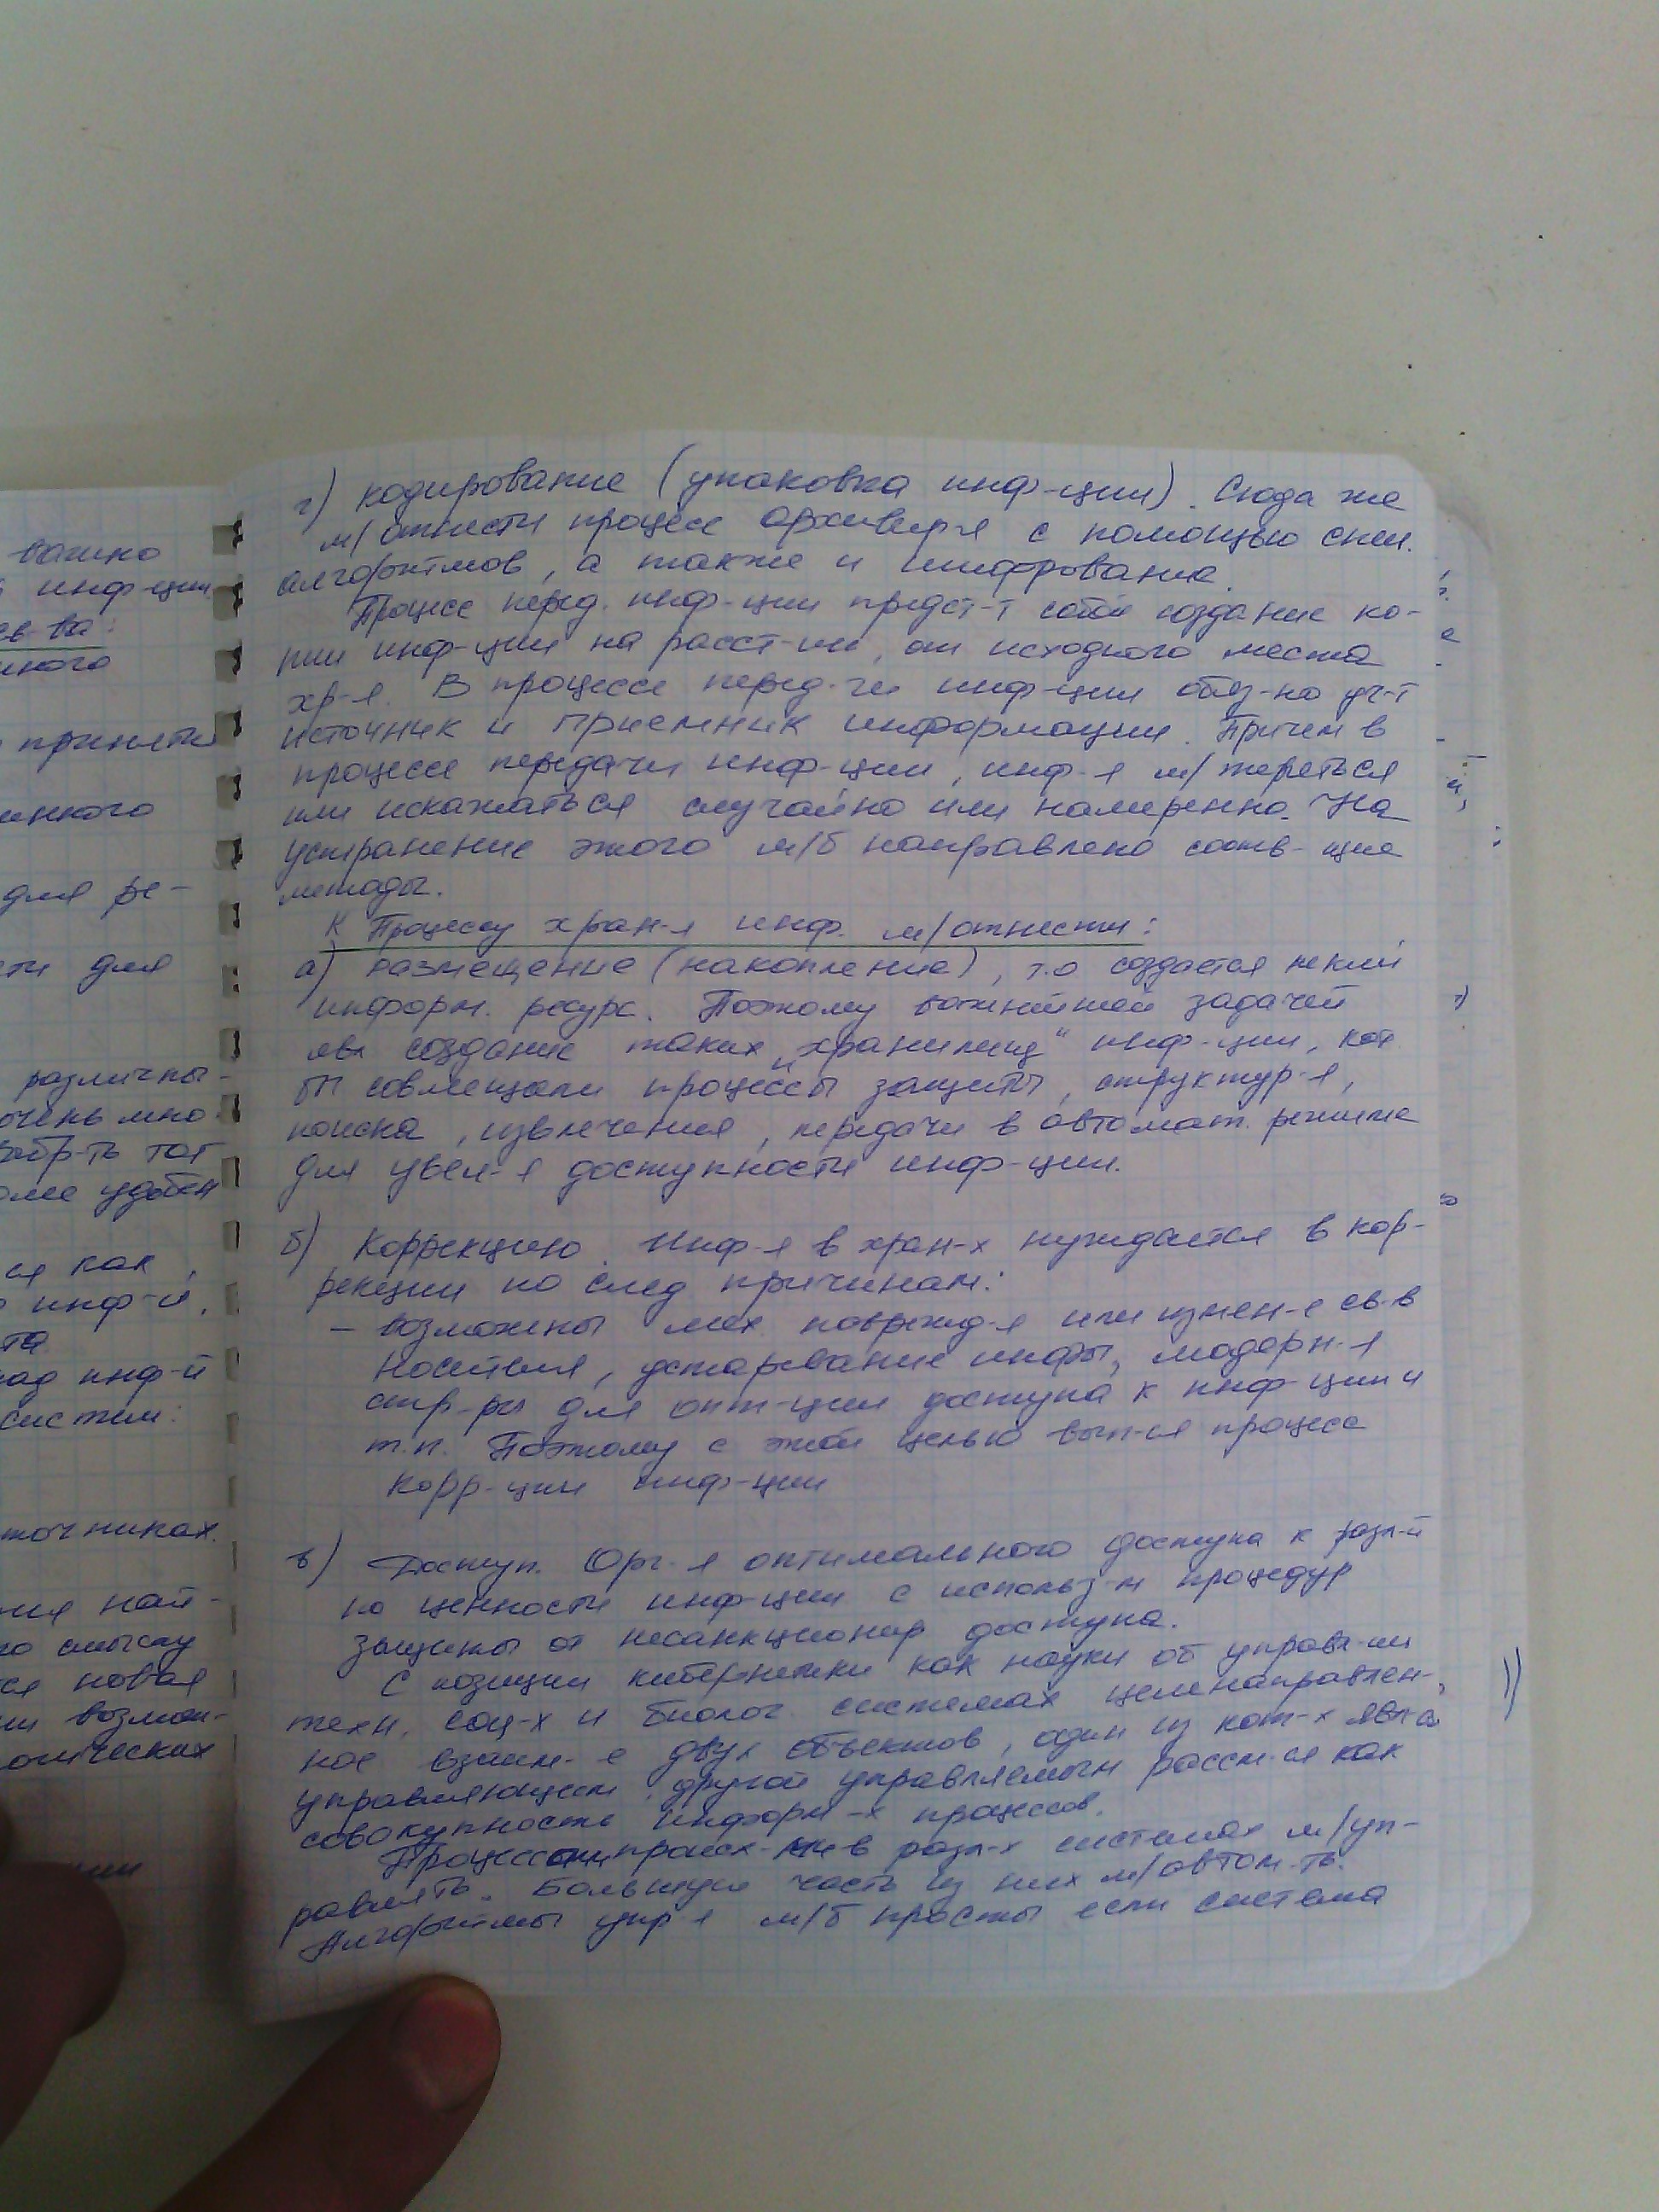 г) кодирование (упаковка инф-ции). Сюда же
м/ отнести процесс архивир-я с помощью спец.
алгоритмов, а также и шифрование.
Процесс перед. инф-ции предст-т собой создание ко-
пии инф-ции на расст-ии, от исходного места
хр-я. В процессе перед-чи инф-ции обяз-но уч-т
источник и приемник информации. Причем в
процессе передачи инф-ции, инф-я м/ теряться
или искажаться случайно или намеренно. На
устранение этого м/б направлено соотв-щие
методы.
К Процессу хран-я инф. м/отнести:
а) размещение (накопление), т.о создается некий
информ. ресурс. Поэтому важнейшей задачей
явл создание таких „хранилищ" инф-ции, кот
бы совмещали процессы защиты, структур-я,
поиска, извлечения, передачи в автомат. режиме
для увел-я доступности инф-ции.
б) Коррекцию. Инф-я в хран-х нуждается в кор-
рекции по след причинам:
- возможны мех поврежд-я или измен-е св-в
носителя, устаревание инфы, модерн-я
стр-ры для опт-ции доступа к инф-ции и
т.п. Поэтому с этой целью вып-ся процесс
корр-ции инф-ции
в) Доступ. Орг-я оптимального доступа к разл-й
по ценности инф-ции с использ-м процедур
защиты от несанкционир доступа.
С позиции кибернетики как науки об управл-ии
техн, соц-х и биолог. системах целенаправлен-
ное взаим-е двух объектов, один из кот-х явл-ся
управляющем, другой управляемым рассм-ся как
совокупность информ-х процессов.
происх-ми в разл-х системах м/уп-
равлять. Большую часть из них м/автом-ть.
Алгоритмы упр-я м/б просты если система
важно
инф-ции
св-ва:
для ре-
для
различны-
очень мно-
удобен
ся как,
инф-й,
инф-й
систем:
най-
по смыслу
новая
возмож-